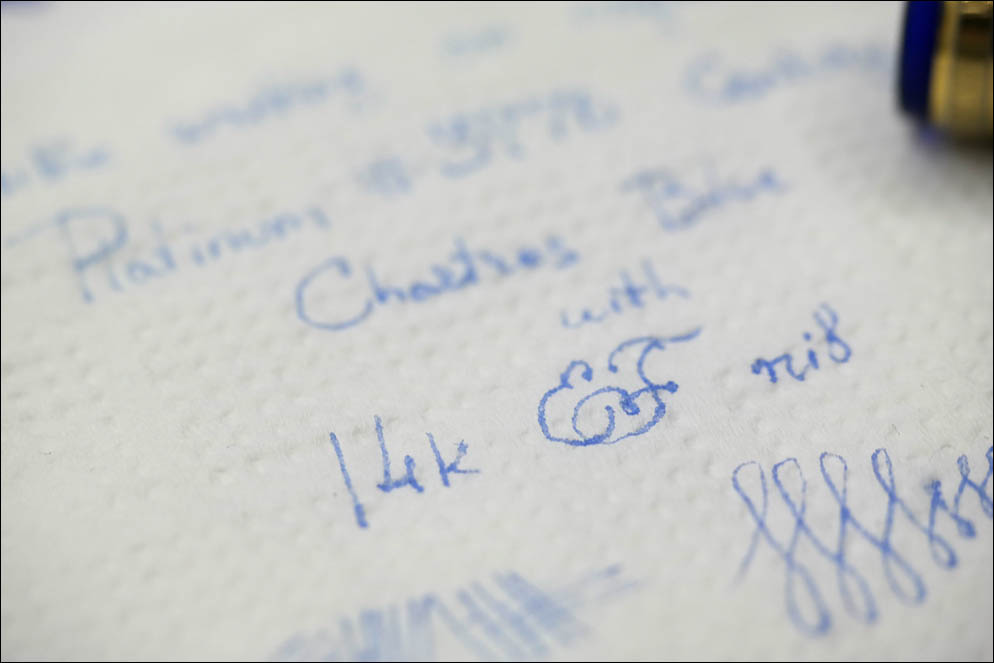 writing on
Platinum # 3776 Century
Chartres Blue
with
14k EF nib